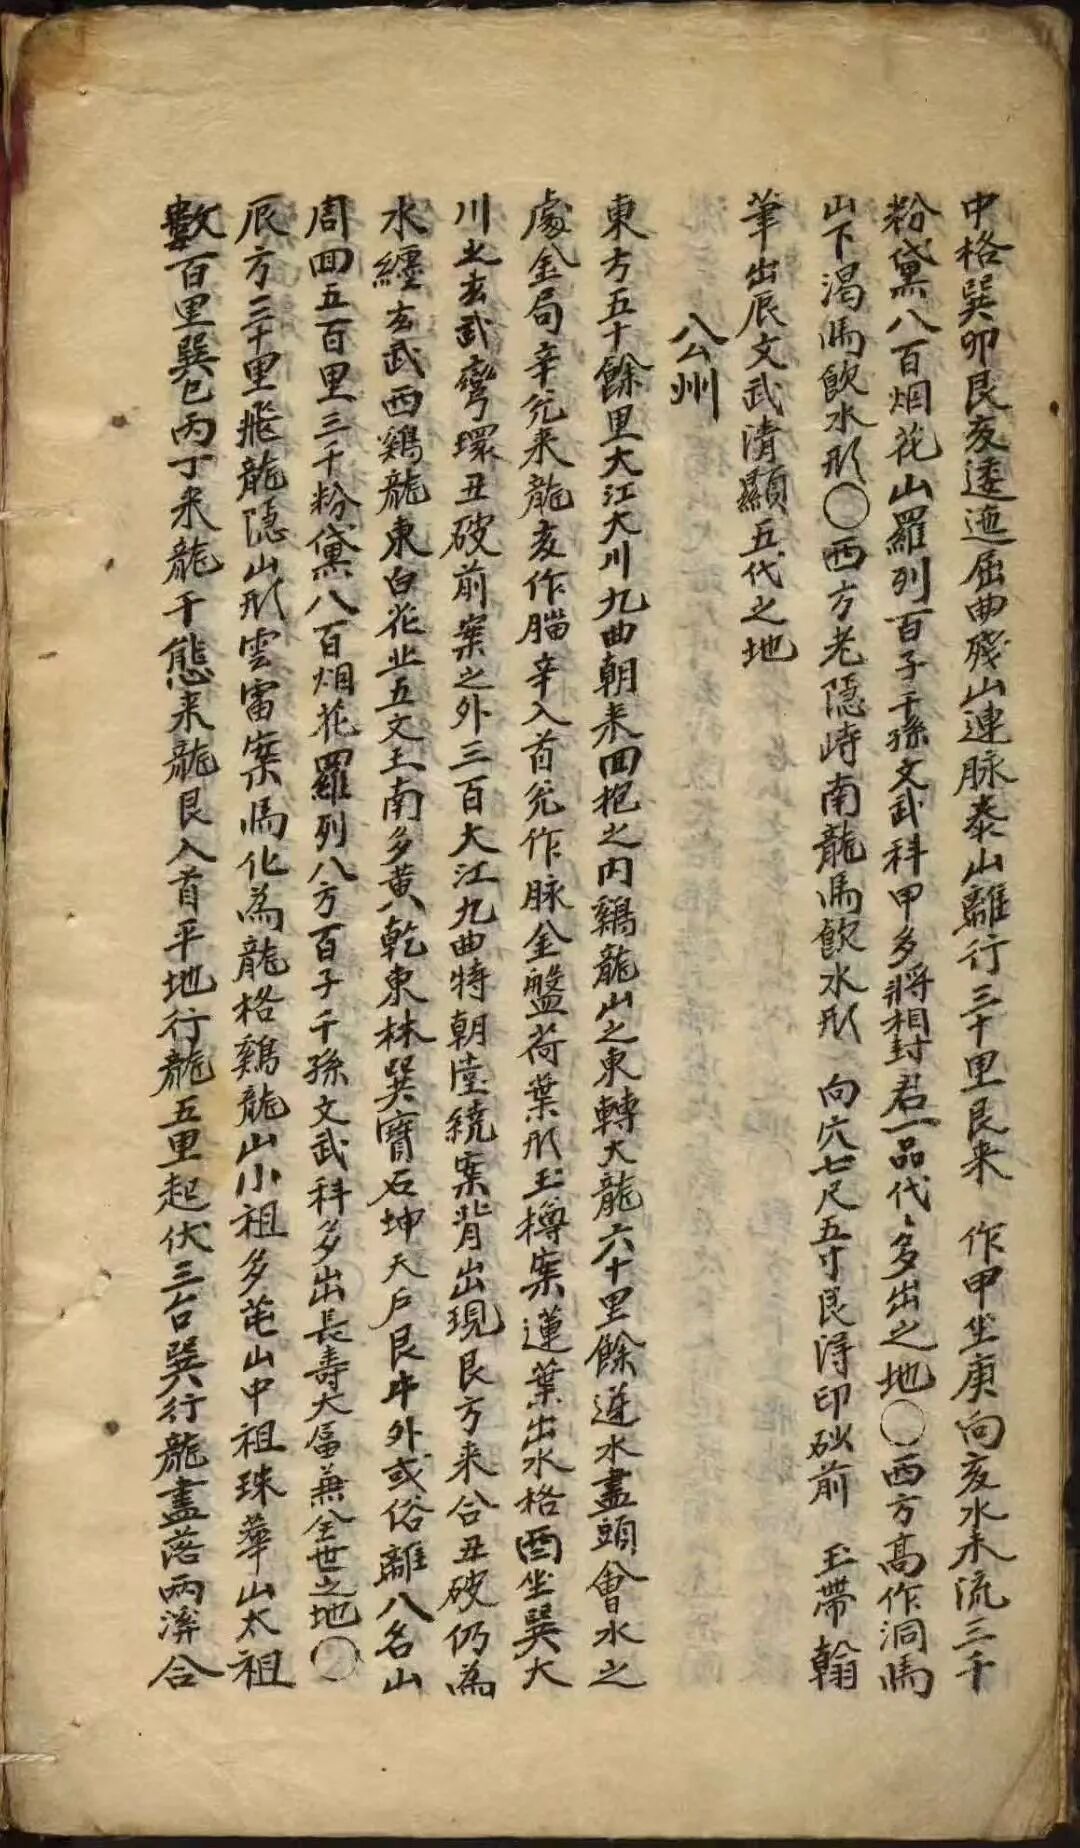 中格巽卯艮亥逶迤屈曲殘山連脉泰山離行三十里艮来 作甲坐庚向亥水来流三千
粉黛八百烟花山羅列百子千孫文武科甲多將相封君一品代々多出之地〇西方高作洞馬
山下渴馬飮水形〇西方老隠峙南龍馬飮水形 向穴七尺五寸艮浔印砂前 玉帶翰
筆出辰文武淸顯五代之地
公州
東方五十餘里大江大川九曲朝来回抱之内鷄龍山之東轉大龍六十里餘逆水盡頭會水之
處金局辛兊来龍亥作腦辛入首兊作脉金盤荷葉形玉樽案蓮葉出水格酉坐巽大
川之玄武彎環丑破前案之外三百大江九曲特朝堂繞案背出現艮方来合丑破仍為
水纏玄武西鷄龍東白花北五文王南多黄乾東林巽寶石坤天戶艮 外或俗離八名山
周回五百里三千粉黛八百烟花羅列八方百子千孫文武科多出長壽大富兼全世之地〇
辰方三十里飛龍隠山形雲雷案馬化為龍格鷄龍山小祖多芚山中祖珠華山太祖
數百里巽巳丙丁来龍千態来龍艮入首平地行龍五里起伏三台巽行龍盡落兩 合